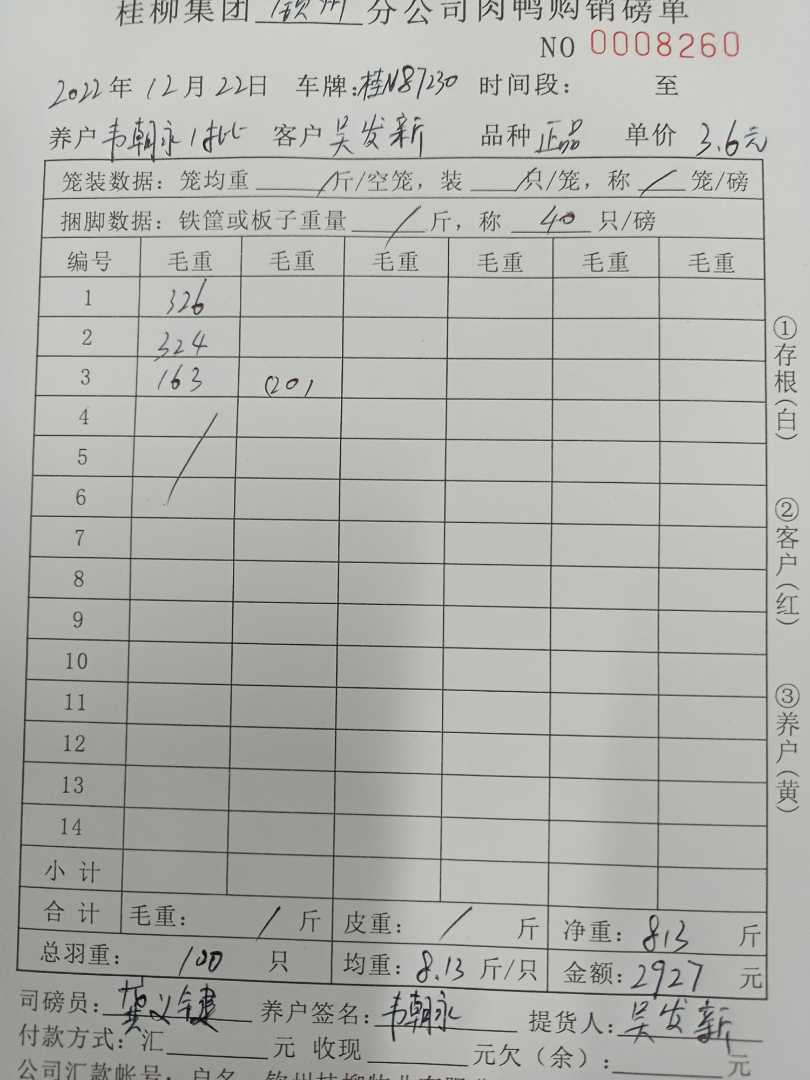 桂柳集团 钦州 分公司肉鸭购销磅单
NO 0008260
2022年 12月 22日 车牌:桂N87230 时间段: 至
养户 韦朝永1批 客户 吴发新 品种 正品 单价 3.6元
笼装数据: 笼均重 / 斤/空笼, 装 / 只/笼, 称 / 笼/磅
捆脚数据: 铁筐或板子重量 / 斤, 称 40 只/磅
编号 毛重 毛重 毛重 毛重 毛重 毛重
1 326
2 324
3 163 (20)
4
5
6
7
8
9
10
11
12
13
14
小计
合计 毛重: / 斤 皮重: / 斤 净重: 813 斤
总羽重: 100 只 均重: 8.13 斤/只 金额: 2927 元
司磅员: 龚义健 养户签名: 韦朝永 提货人: 吴发新
付款方式: 汇 元 收现 元欠(余): 元
①存根(白)
②客户(红)
③养户(黄)